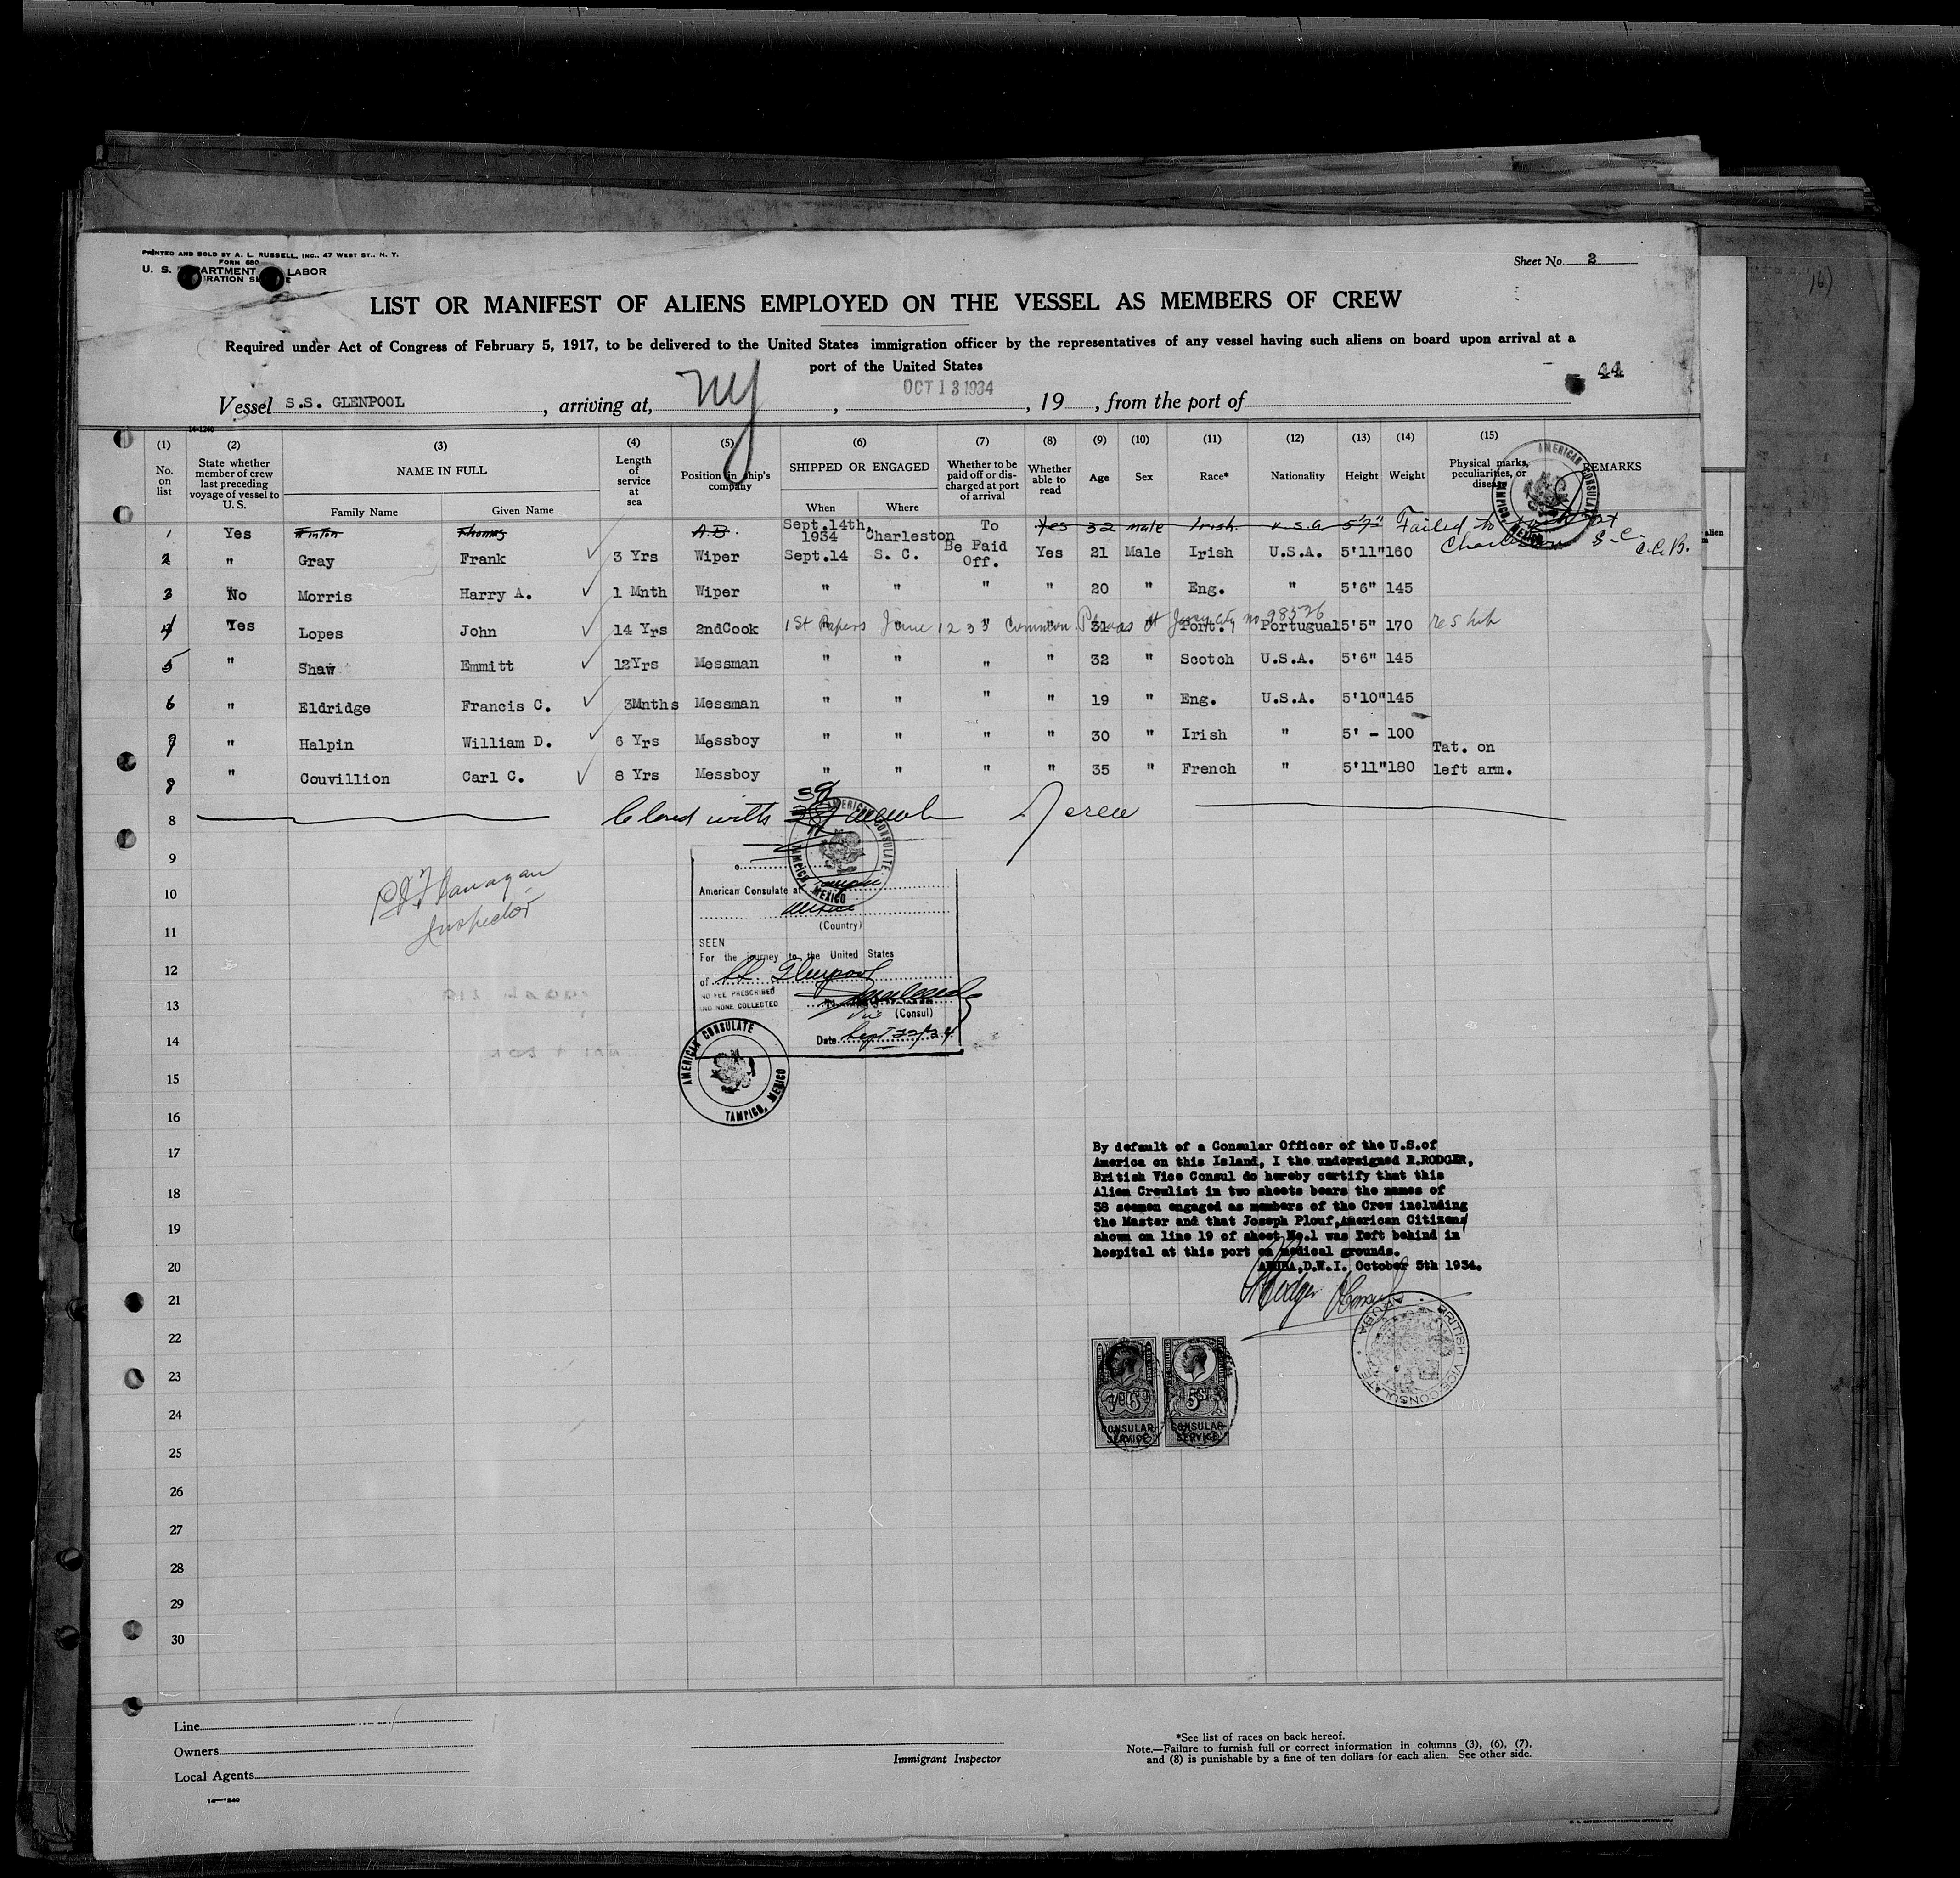 PRINTED AND SOLD BY A. L. RUSSELL, INC., 47 WEST ST., N. Y.
FORM 680
U. S. DEPARTMENT LABOR
Sheet No. 2
LIST OR MANIFEST OF ALIENS EMPLOYED ON THE VESSEL AS MEMBERS OF CREW
Required under Act of Congress of February 5, 1917, to be delivered to the United States immigration officer by the representatives of any vessel having such aliens on board upon arrival at a
port of the United States
44
Vessel S.S. GLENPOOL, arriving at, NY, OCT 13 1934, 19, from the port of
14-1240
(1) (2) (3) (4) (5) (6) (7) (8) (9) (10) (11) (12) (13) (14) (15)
No. on list
State whether member of crew last preceding voyage of vessel to U. S.
NAME IN FULL
Family Name Given Name
Length of service at sea
Position in ship's company
SHIPPED OR ENGAGED
When Where
Whether to be paid off or discharged at port of arrival
Whether able to read
Age
Sex
Race*
Nationality
Height
Weight
Physical marks, peculiarities, or disease
REMARKS
1 Yes Thomas A.B. Sept.14th, 1934 Charleston To Yes 32 male Irish. U.S.A 5'7" Failed to
2 " Gray Frank 3 Yrs Wiper Sept.14 S. C. Be Paid Off. Yes 21 Male Irish U.S.A. 5'11" 160 Charleston S.C. C.C.B.
3 No Morris Harry A. 1 Mnth Wiper " " " " 20 " Eng. " 5'6" 145
4 Yes Lopes John 14 Yrs 2ndCook " 31 " Port. Portugual 5'5" 170
1st Papers June 1233 Common Pleas Jersey City no 98526
5 " Shaw Emmitt 12Yrs Messman " " " " 32 " Scotch U.S.A. 5'6" 145
6 " Eldridge Francis C. 3Mnths Messman " " " " 19 " Eng. U.S.A. 5'10" 145
7 " Halpin William D. 6 Yrs Messboy " " " " 30 " Irish " 5' - 100
8 " Couvillion Carl C. 8 Yrs Messboy " " " " 35 " French " 5'11" 180 Tat. on left arm.
8 Closed with crew
9
10
11
12
13
14
15
16
17
18
19
20
21
22
23
24
25
26
27
28
29
30
Flanagan
Inspector
AMERICAN CONSULATE
TAMPICO, MEXICO
American Consulate at Tampico
Mexico
(Country)
SEEN
For the journey to the United States
of SS. Glenpool
NO FEE PRESCRIBED
AND NONE COLLECTED
Vice (Consul)
Date Sept
AMERICAN CONSULATE
TAMPICO, MEXICO
AMERICAN CONSULATE
TAMPICO, MEXICO
By default of a Consular Officer of the U.S.of
America on this Island, I the undersigned R.RODGER,
British Vice Consul do hereby certify that this
Alien Crewlist in two sheets bears the names of
38 seamen engaged as members of the Crew including
the Master and that Joseph Plouf,American Citizen
shown on line 19 of sheet No.1 was left behind in
hospital at this port on medical grounds.
ARUBA,D.W.I. October 5th 1934.
R Rodger
BRITISH VICE-CONSULATE
ARUBA
CONSULAR SERVICE
5
CONSULAR SERVICE
Line
Owners
Local Agents
14—1240
Immigrant Inspector
*See list of races on back hereof.
Note.—Failure to furnish full or correct information in columns (3), (6), (7),
and (8) is punishable by a fine of ten dollars for each alien. See other side.